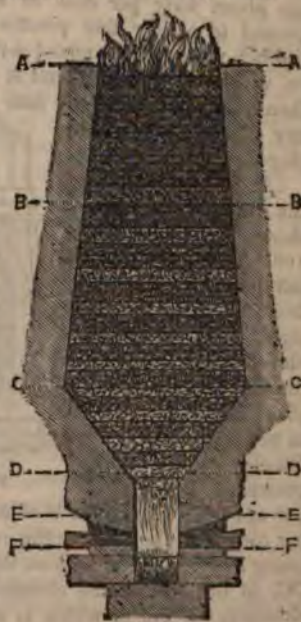 A A
B B
C C
D D
E E
F F